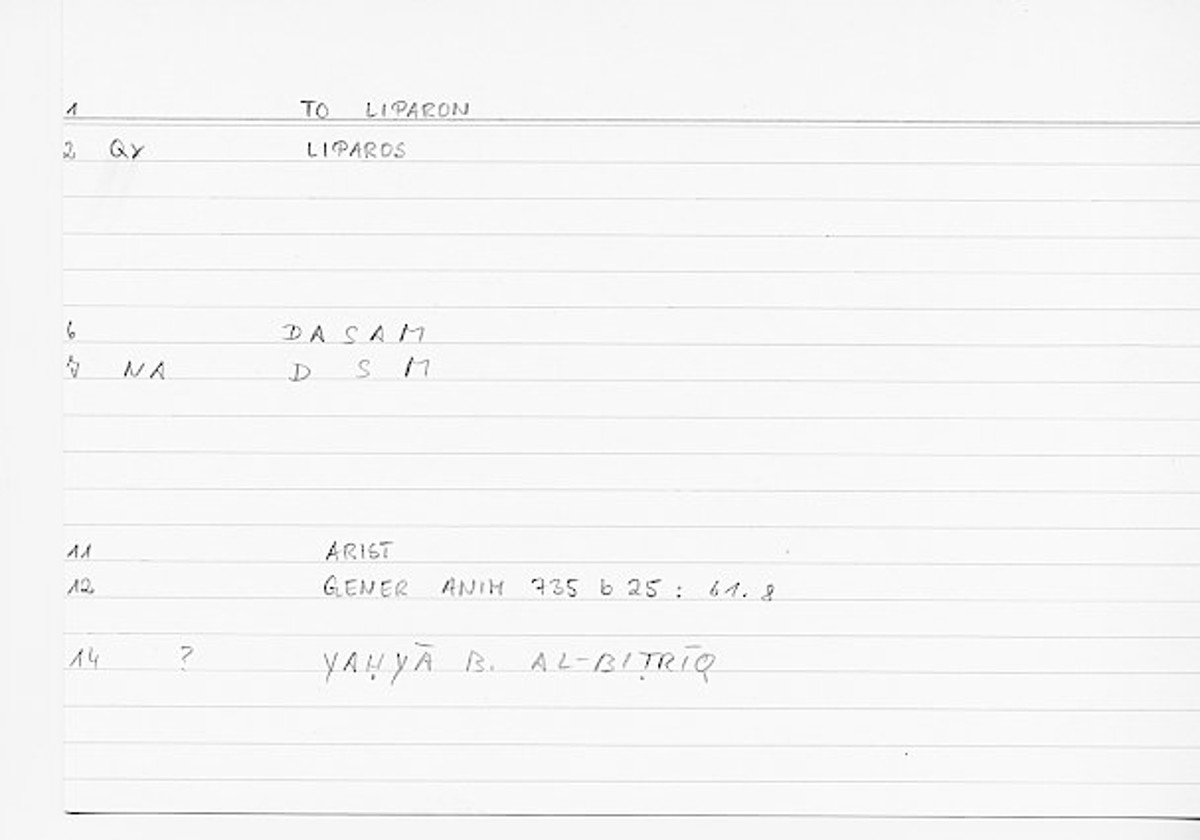 1 TO LIPARON
2 Qy LIPAROS
6 DASAM
7 NA D S M
11 ARIST
12 GENER ANIM 735 b 25 : 61. 8
14 ? YAḤYĀ B. AL-BIṬRĪQ